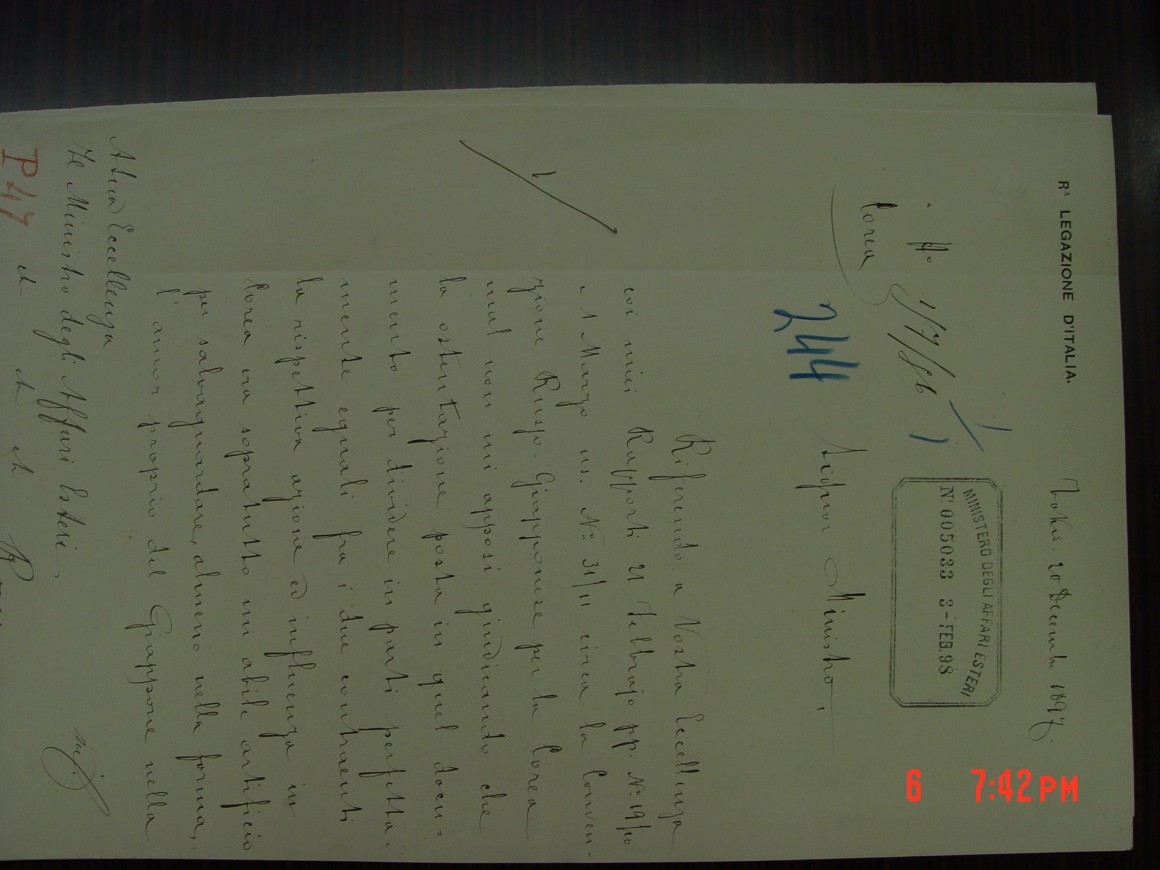 Rᴬ LEGAZIONE D'ITALIA.
Tokio. 20 Decembre 1897.
Corea
MINISTERO DEGLI AFFARI ESTERI
Nº 005033 3-FEB.98
244
Signor Ministro,
Riferendo a Vostra Eccellenza
coi miei Rapporti 21 Febbrajo pp. Nº 19/10
e 1 Marzo us. Nº 31/11 circa la Conven-
zione Russo-Giapponese per la Corea
mal non mi apposi giudicando che
la ostentazione posta in quel docu-
mento per dividere in parti perfetta-
mente eguali fra i due contraenti
la rispettiva azione ed influenza in
Corea era sopratutto un abile artificio
per salvaguardare, almeno nella forma,
l'amor proprio del Giappone nella
A Sua Eccellenza
Le Ministro degli Affari Esteri.
P47
6 7:42PM